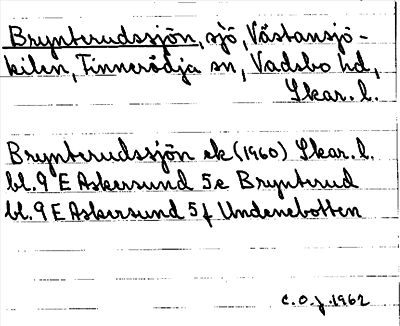 Brynterudssjön, sjö, Västansjö-
kilen, Tinneródja sn, Vadsbo hd,
Skar. l.
Brynterudssjön ek (1960) Skar. l.
bl. 9 E Askersund 5e Brynterud
bl. 9 E Askersund 5f Undenebotten
C. O. J. 1962